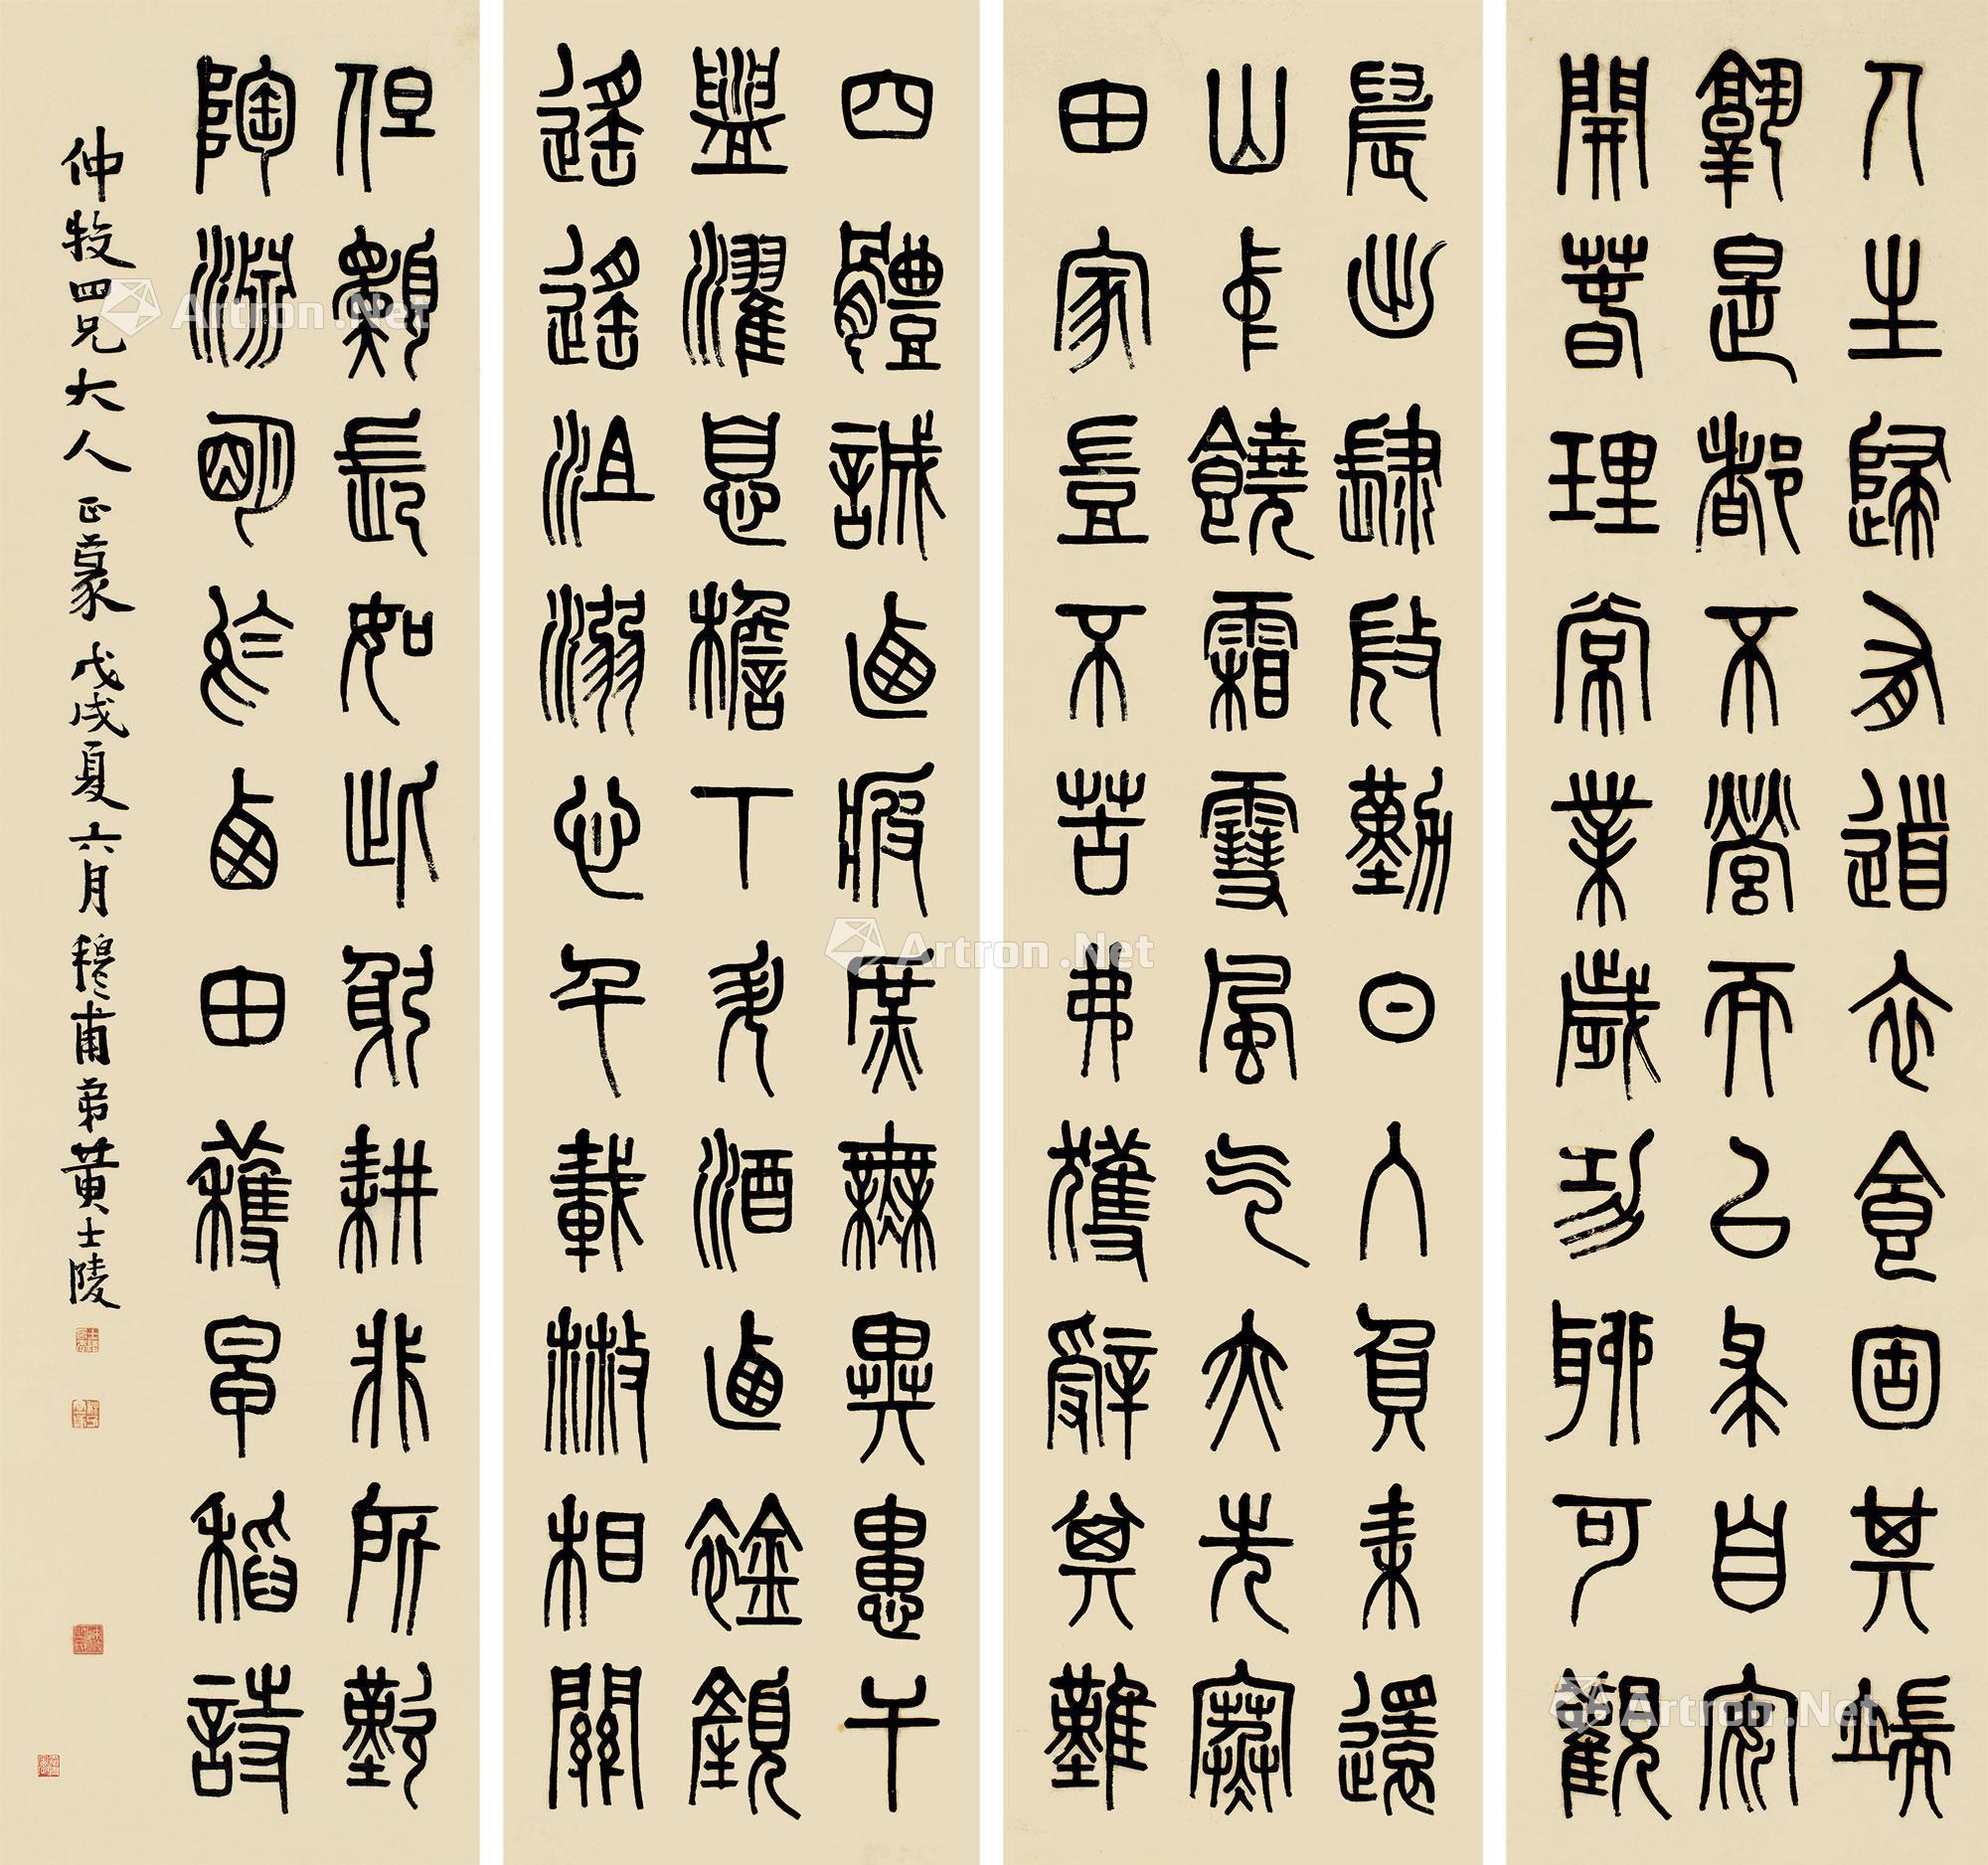 人生歸有道衣食固其端
孰是都不營而以求自安
開春理常業歲功聊可觀
晨出肆微勤日入負耒還
山中饒霜雪風气亦先寒
田家豈不苦弗獲辭其難
四體誠迺疲庶無異患干
盥濯息檐下斗酒迺襟顏
遙遙沮溺心千載散相關
但願長如此躬耕非所歎
陶淵明於西田穫早稻詩
仲牧四兄大人正篆戊戌夏六月穆甫弟黃士陵
Artron.Net
Artron.Net
Artron.Net